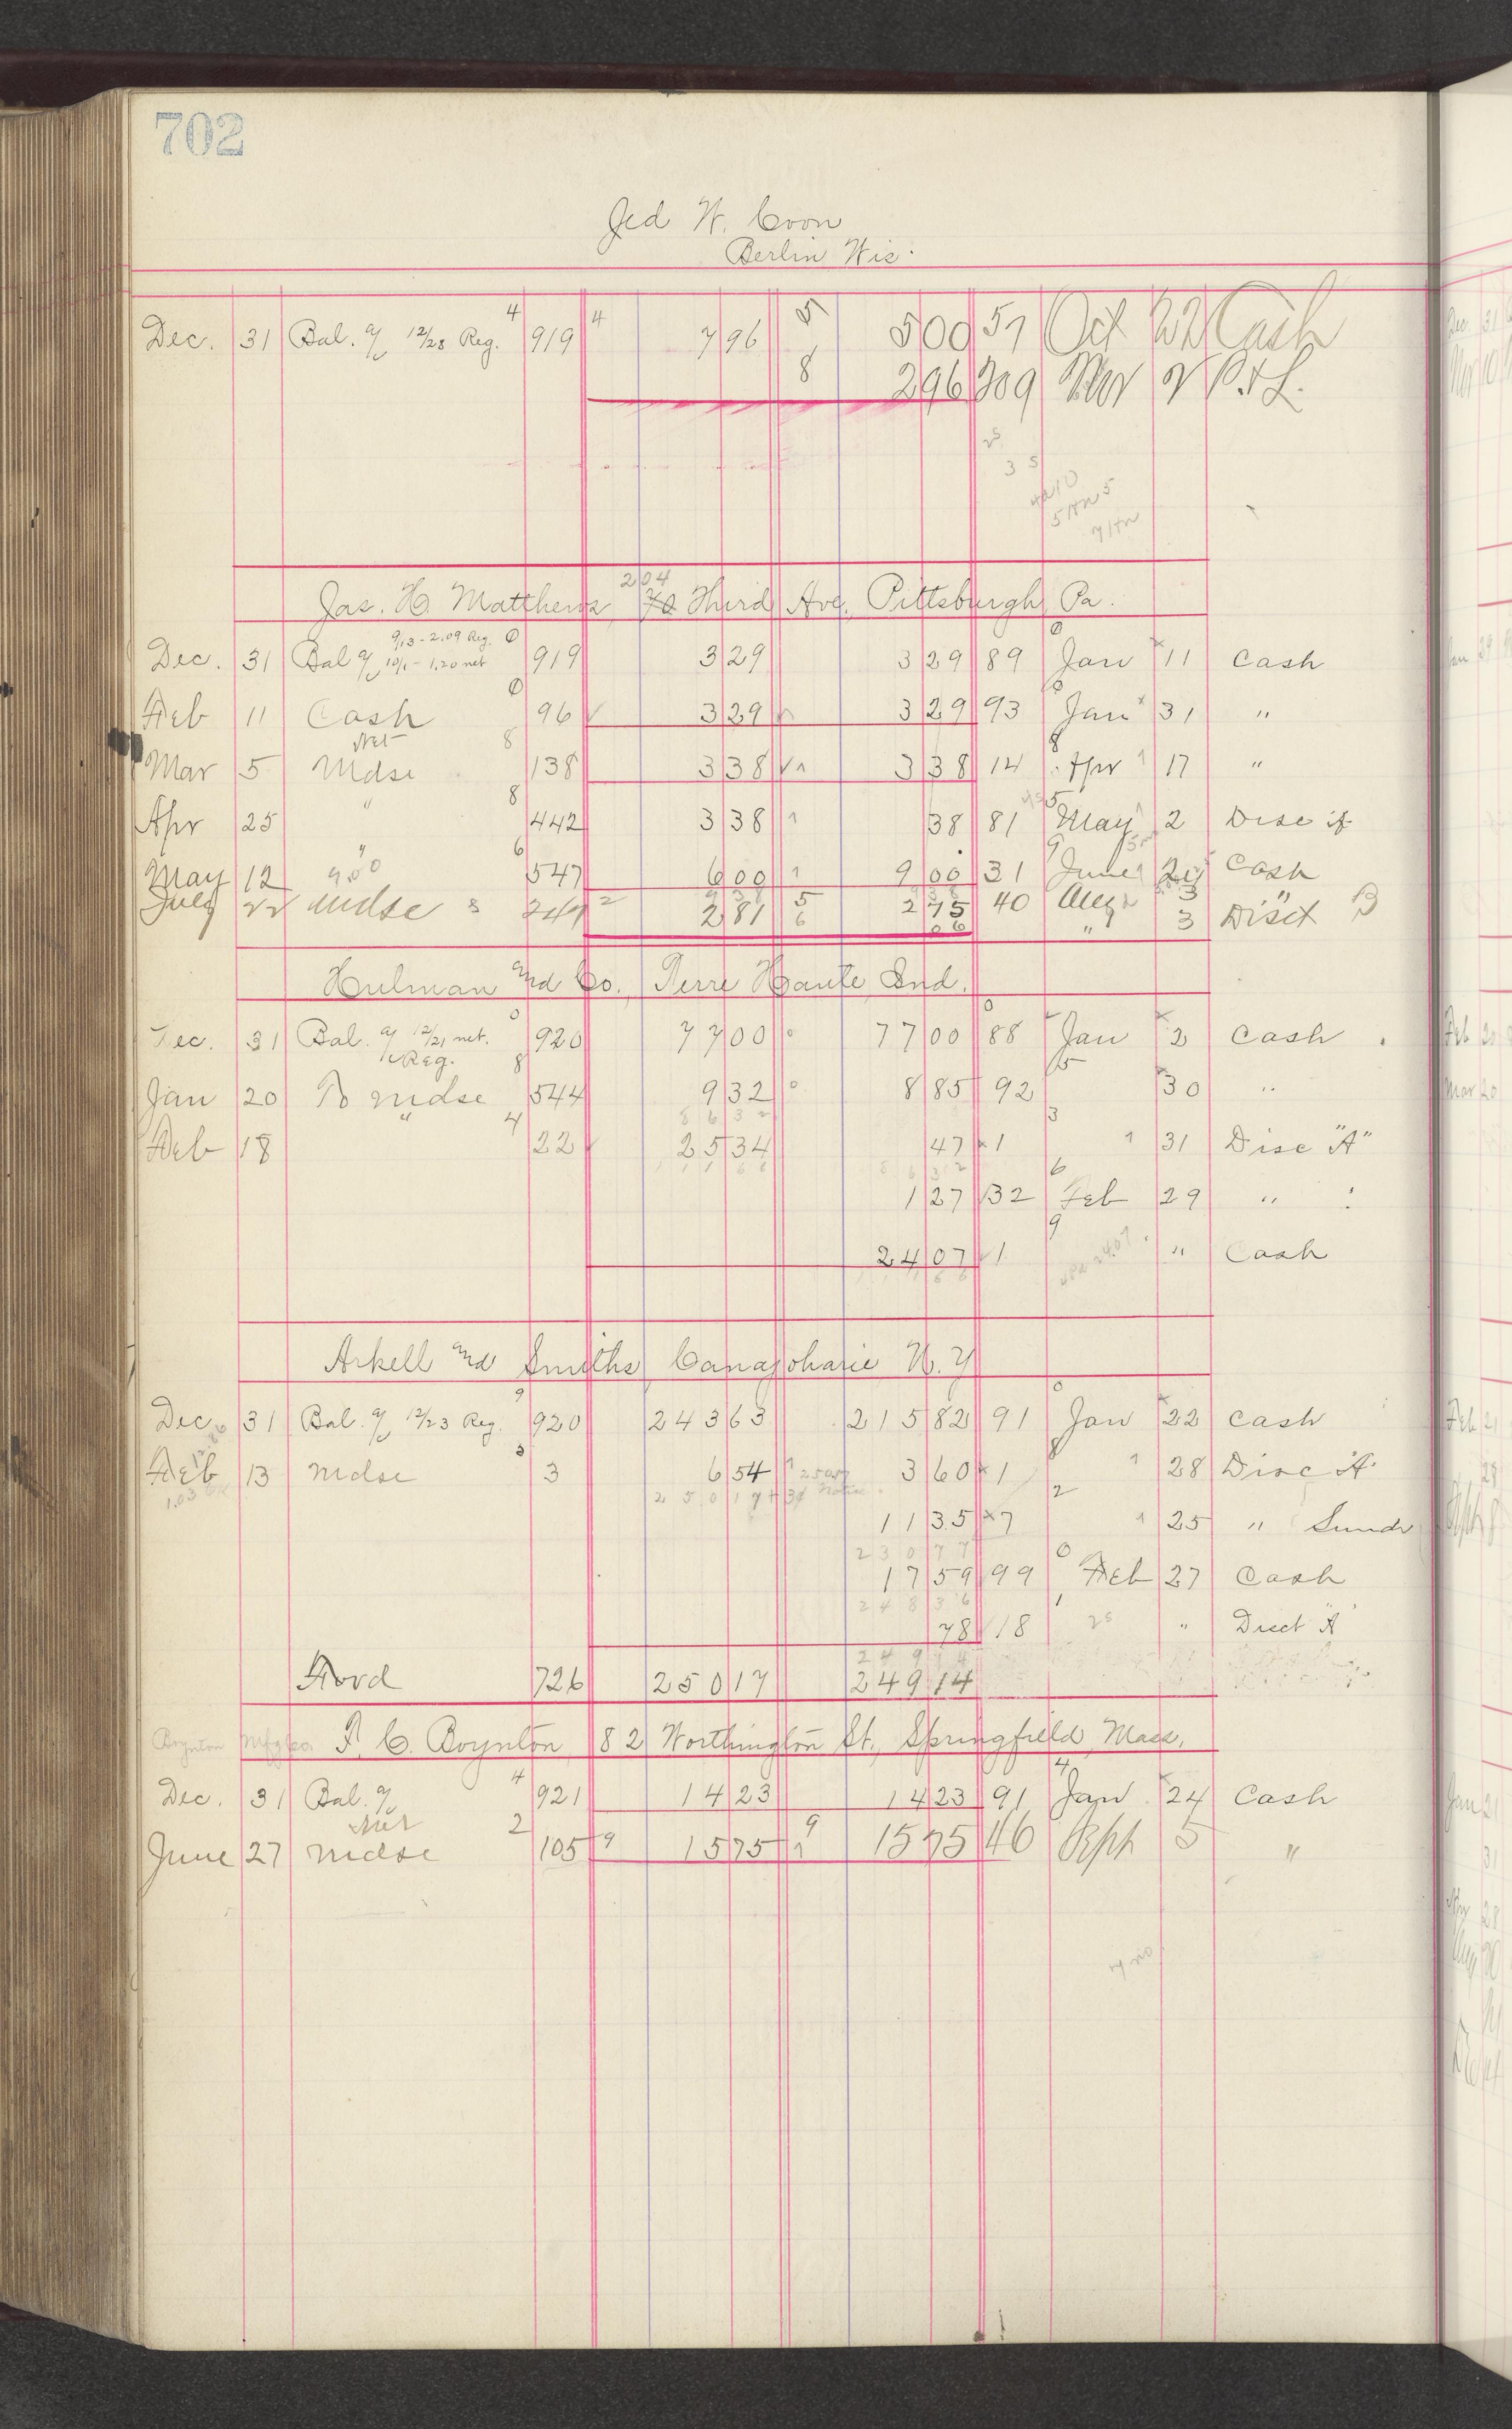 702
Jed W. Coon
Berlin Wis.
Dec. 31 Bal. a/c 12/28 Reg. 4 919 4 7 96 5 5 00 57 Oct 22 Cash
8 2 96 309 Nov 2 P. & L.
25
3 5
7 Hn
204
Jas. H. Matthews, 70 Third Ave, Pittsburgh Pa.
9/13 - 2.09 Reg. 0
Dec. 31 Bal a/c 10/1 - 1.20 net 919 3 29 3 29 89 Jan 11 Cash
Feb 11 Cash 0 96 3 29 3 29 93 Jan 31 "
Net
Mar 5 Mdse 8 138 3 38 3 38 14 Apr 17 "
Apr 25 " 8 442 3 38 38 81 May 2 Disc
May 12 " 9.00 6 547 6 00 9 00 31 June Cash
July 22 Mdse 8 2 2 81 5 2 75 40 Aug 3 "
6 06 " 3 Disct B
Hulman and Co. Terre Haute Ind.
Dec. 31 Bal. a/c 12/21 net. 0 920 77 00 77 00 88 Jan 2 Cash
Reg.
Jan 20 To Mdse 8 544 9 32 8 85 92 30 "
86 32
Feb 18 " 4 22 25 34 47 1 31 Disc "A"
111 66 86 32
1 27 32 Feb 29 "
24 07 1 " Cash
Arkell and Smiths Canajoharie N.Y
Dec. 31 Bal. a/c 12/23 Reg. 9 920 243 63 215 82 91 Jan 22 Cash
Feb 13 Mdse 3 3 6 54 3 60 1 28 Disc "A"
250 17
11 35 7 25 " Sundr
230 77
17 59 99 Feb 27 Cash
248 36
78 18 " Disct "A"
Ford 726 250 17 249 14
Boynton Mfg Co. P. C. Boynton, 82 Worthington St., Springfield, Mass,
Dec. 31 Bal. a/c 4 921 14 23 14 23 91 Jan 24 Cash
Net
June 27 Mdse 2 105 9 15 75 9 15 75 46 Sept 5 "